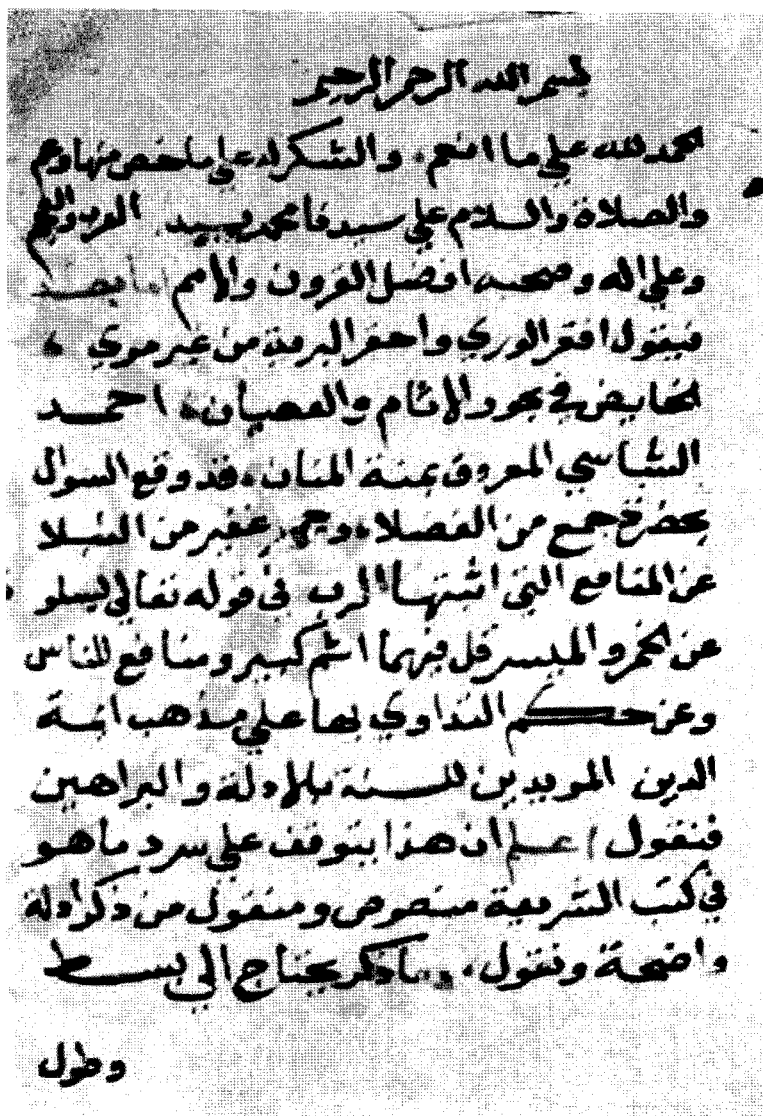 بسم الله الرحمن الرحيم
الحمد لله علي ما انعم، والشكر له علي ما خص منها وعم
والصلاة والسلام علي سيدنا محمد سيد العرب والعجم
وعلي اله وصحبه افضل القرون والامم اما بعد
فيقول افقر الوري واحقر البرية من غير مري ،
الخايض في بحور الاثام والعصيان، احمد
الشاسي المعروف بمنة المنان، قد وقع السوال
بحضرة جمع من الفضلاء، وجم غفير من النبلا
عن المنافع التي اثبتها الرب في قوله تعالي يسلو
عن الخمر والميسر قل فيهما اثم كبير ومنافع للناس
وعن حكم التداوي بها علي مذهب ايمة
الدين المويدين للسنة بالادلة والبراهين
فنقول اعلم ان هذا يتوقف علي سرد ما هو
في كتب الشريعة منصوص ومنقول من ذكر ادلة
واضحة ونقول، وما ذكر يحتاج الي بسط
وطول